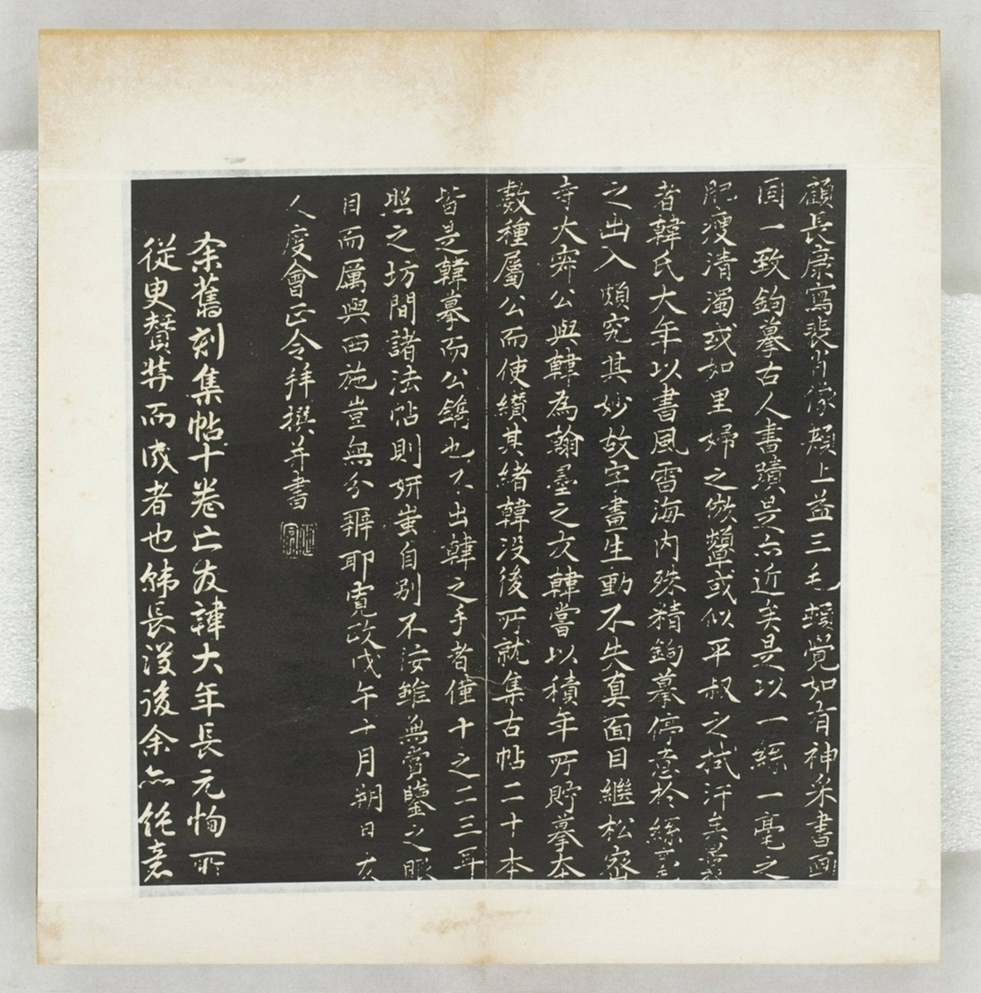 顧長康寫裴楷像頰上益三毛頓覺如有神采書画
同一致鉤摹古人書蹟是亦近矣是以一絲一毫之
肥瘦清濁或如里婦之傚顰或似平叔之拭汗矣
者韓氏大年以書風雷海內殊精鉤摹停意於絲毫
之出入頗究其妙故字畫生動不失真面目繼松窓
寺大寀公與韓為翰墨之友韓嘗以積年所貯摹本
數種屬公而使纘其緒韓沒後所就集古帖二十本
皆是韓摹而公鐫也不出韓之手者僅十之二三耳
照之坊間諸法帖則妍蚩自別不汝雖無賞鑒之眼
目而厲與西施豈無分辨耶寬政戊午十月朔日友
人度會正令拜撰并書
余舊刻集帖十卷亡友韓大年長元恂所
從臾贊奘而成者也韓長沒後余亦絕意